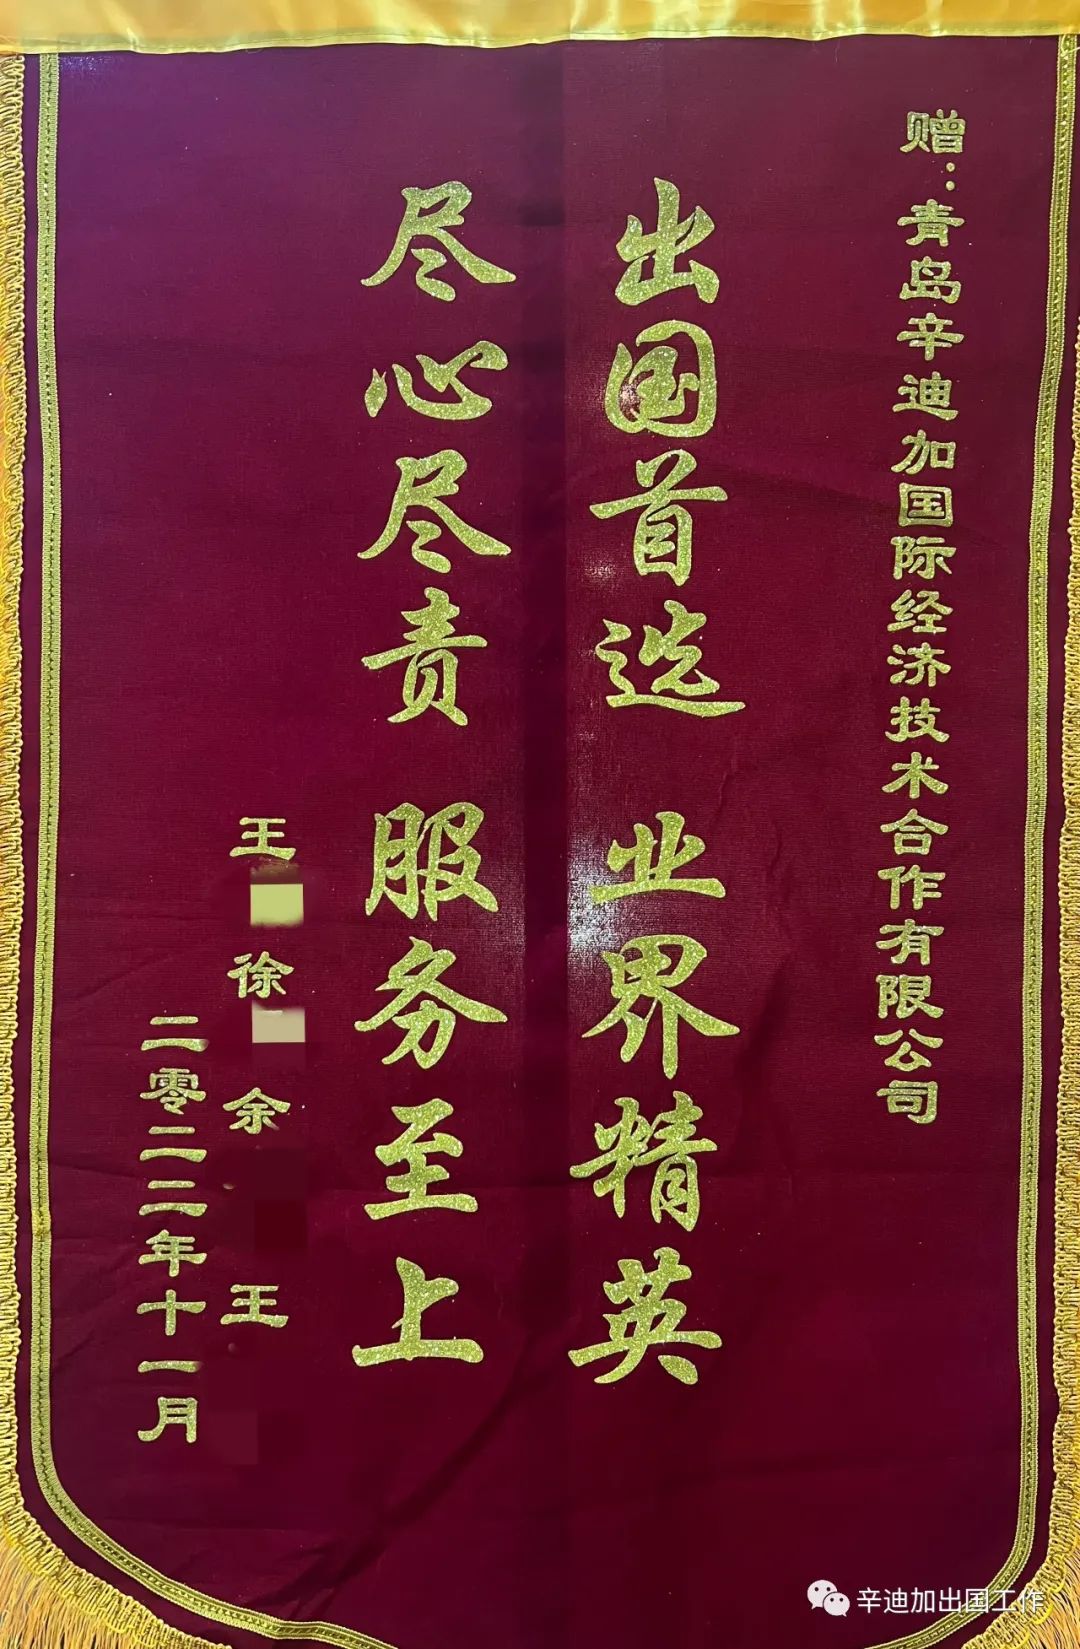 赠:青岛辛迪加国际经济技术合作有限公司
出国首选 业界精英
尽心尽责 服务至上
王 徐 余 王
二零二二年十一月
辛迪加出国工作